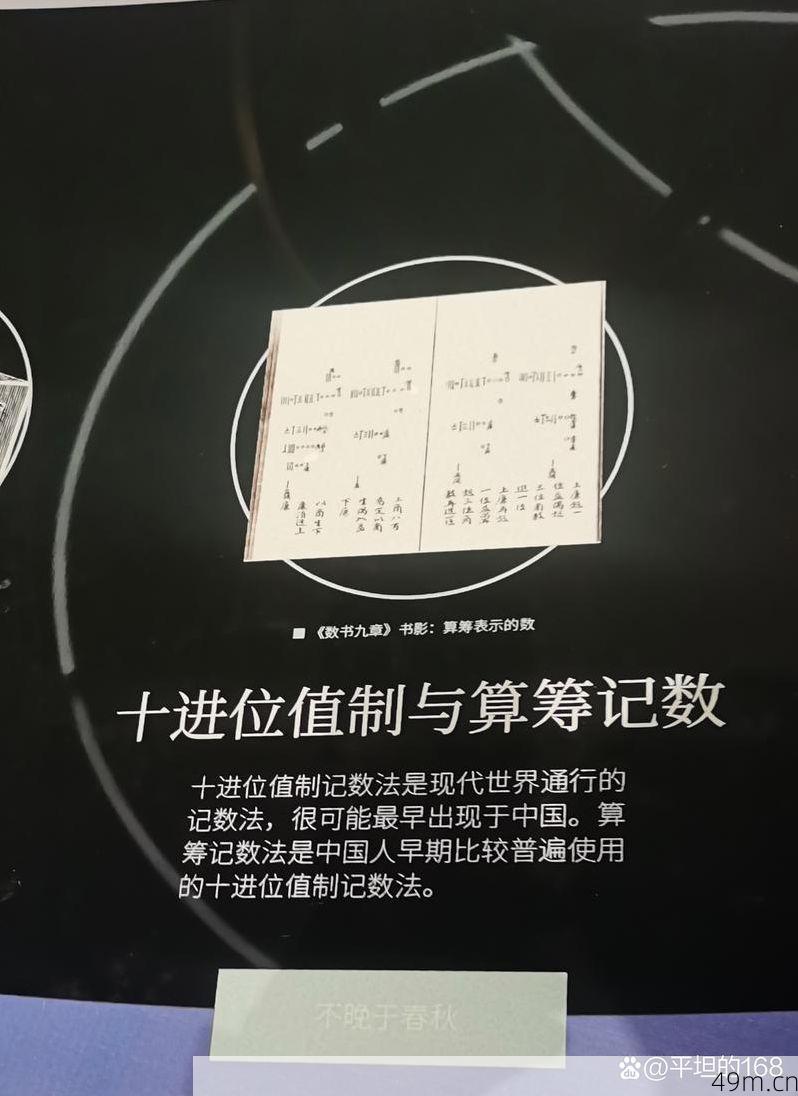 ■《数书九章》书影：算筹表示的数
十进位值制与算筹记数
十进位值制记数法是现代世界通行的
记数法，很可能最早出现于中国。算
筹记数法是中国人早期比较普遍使用
的十进位值制记数法。
不晚于春秋
@平坦的168
49m.cn